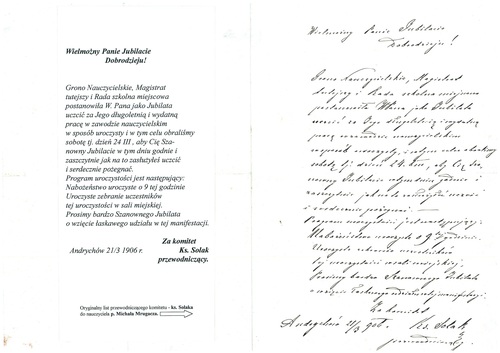 Wielmożny Panie Jubilacie
Dobrodzieju!
Grono Nauczycielskie, Magistrat
tutejszy i Rada szkolna miejscowa
postanowiła W. Pana jako Jubilata
uczcić za Jego długoletnią i wydatną
pracę w zawodzie nauczycielskim
w sposób uroczysty i w tym celu obraliśmy
sobotę tj. dzień 24 III , aby Cię Sza-
nowny Jubilacie w tym dniu godnie i
zaszczytnie jak na to zasłużyłeś uczcić
i serdecznie pożegnać.
Program uroczystości jest następujący:
Nabożeństwo uroczyste o 9 tej godzinie
Uroczyste zebranie uczestników
tej uroczystości w sali miejskiej.
Prosimy bardzo Szanownego Jubilata
o wzięcie łaskawego udziału w tej manifestacji.
Za komitet
Andrychów 21/3 1906 r. Ks. Solak
przewodniczący.
Oryginalny list przewodniczącego komitetu - ks. Solaka
do nauczyciela p. Michała Mrugacza.
Wielmożny Panie Jubilacie
Dobrodzieju!
Grono Nauczycielskie, Magistrat
tutejszy i Rada szkolna miejscowa
postanowiła WPana jako Jubilata
uczcić za Jego długoletnią i wydatną
pracę w zawodzie nauczycielskim
w sposób uroczysty, i w tym celu obraliśmy
sobotę tj. dzień 24. III, aby Cię Sza-
nowny Jubilacie w tym dniu godnie i
zaszczytnie jak na to zasłużyłeś uczcić
i serdecznie pożegnać.
Program uroczystości jest następujący:
Nabożeństwo uroczyste o 9tej godzinie.
Uroczyste zebranie uczestników
tej uroczystości w sali miejskiej.
Prosimy bardzo Szanownego Jubilata
o wzięcie łaskawego udziału w tej manifestacji.
Za komitet
Andrychów 21/3 906. Ks. Solak
przewodniczący